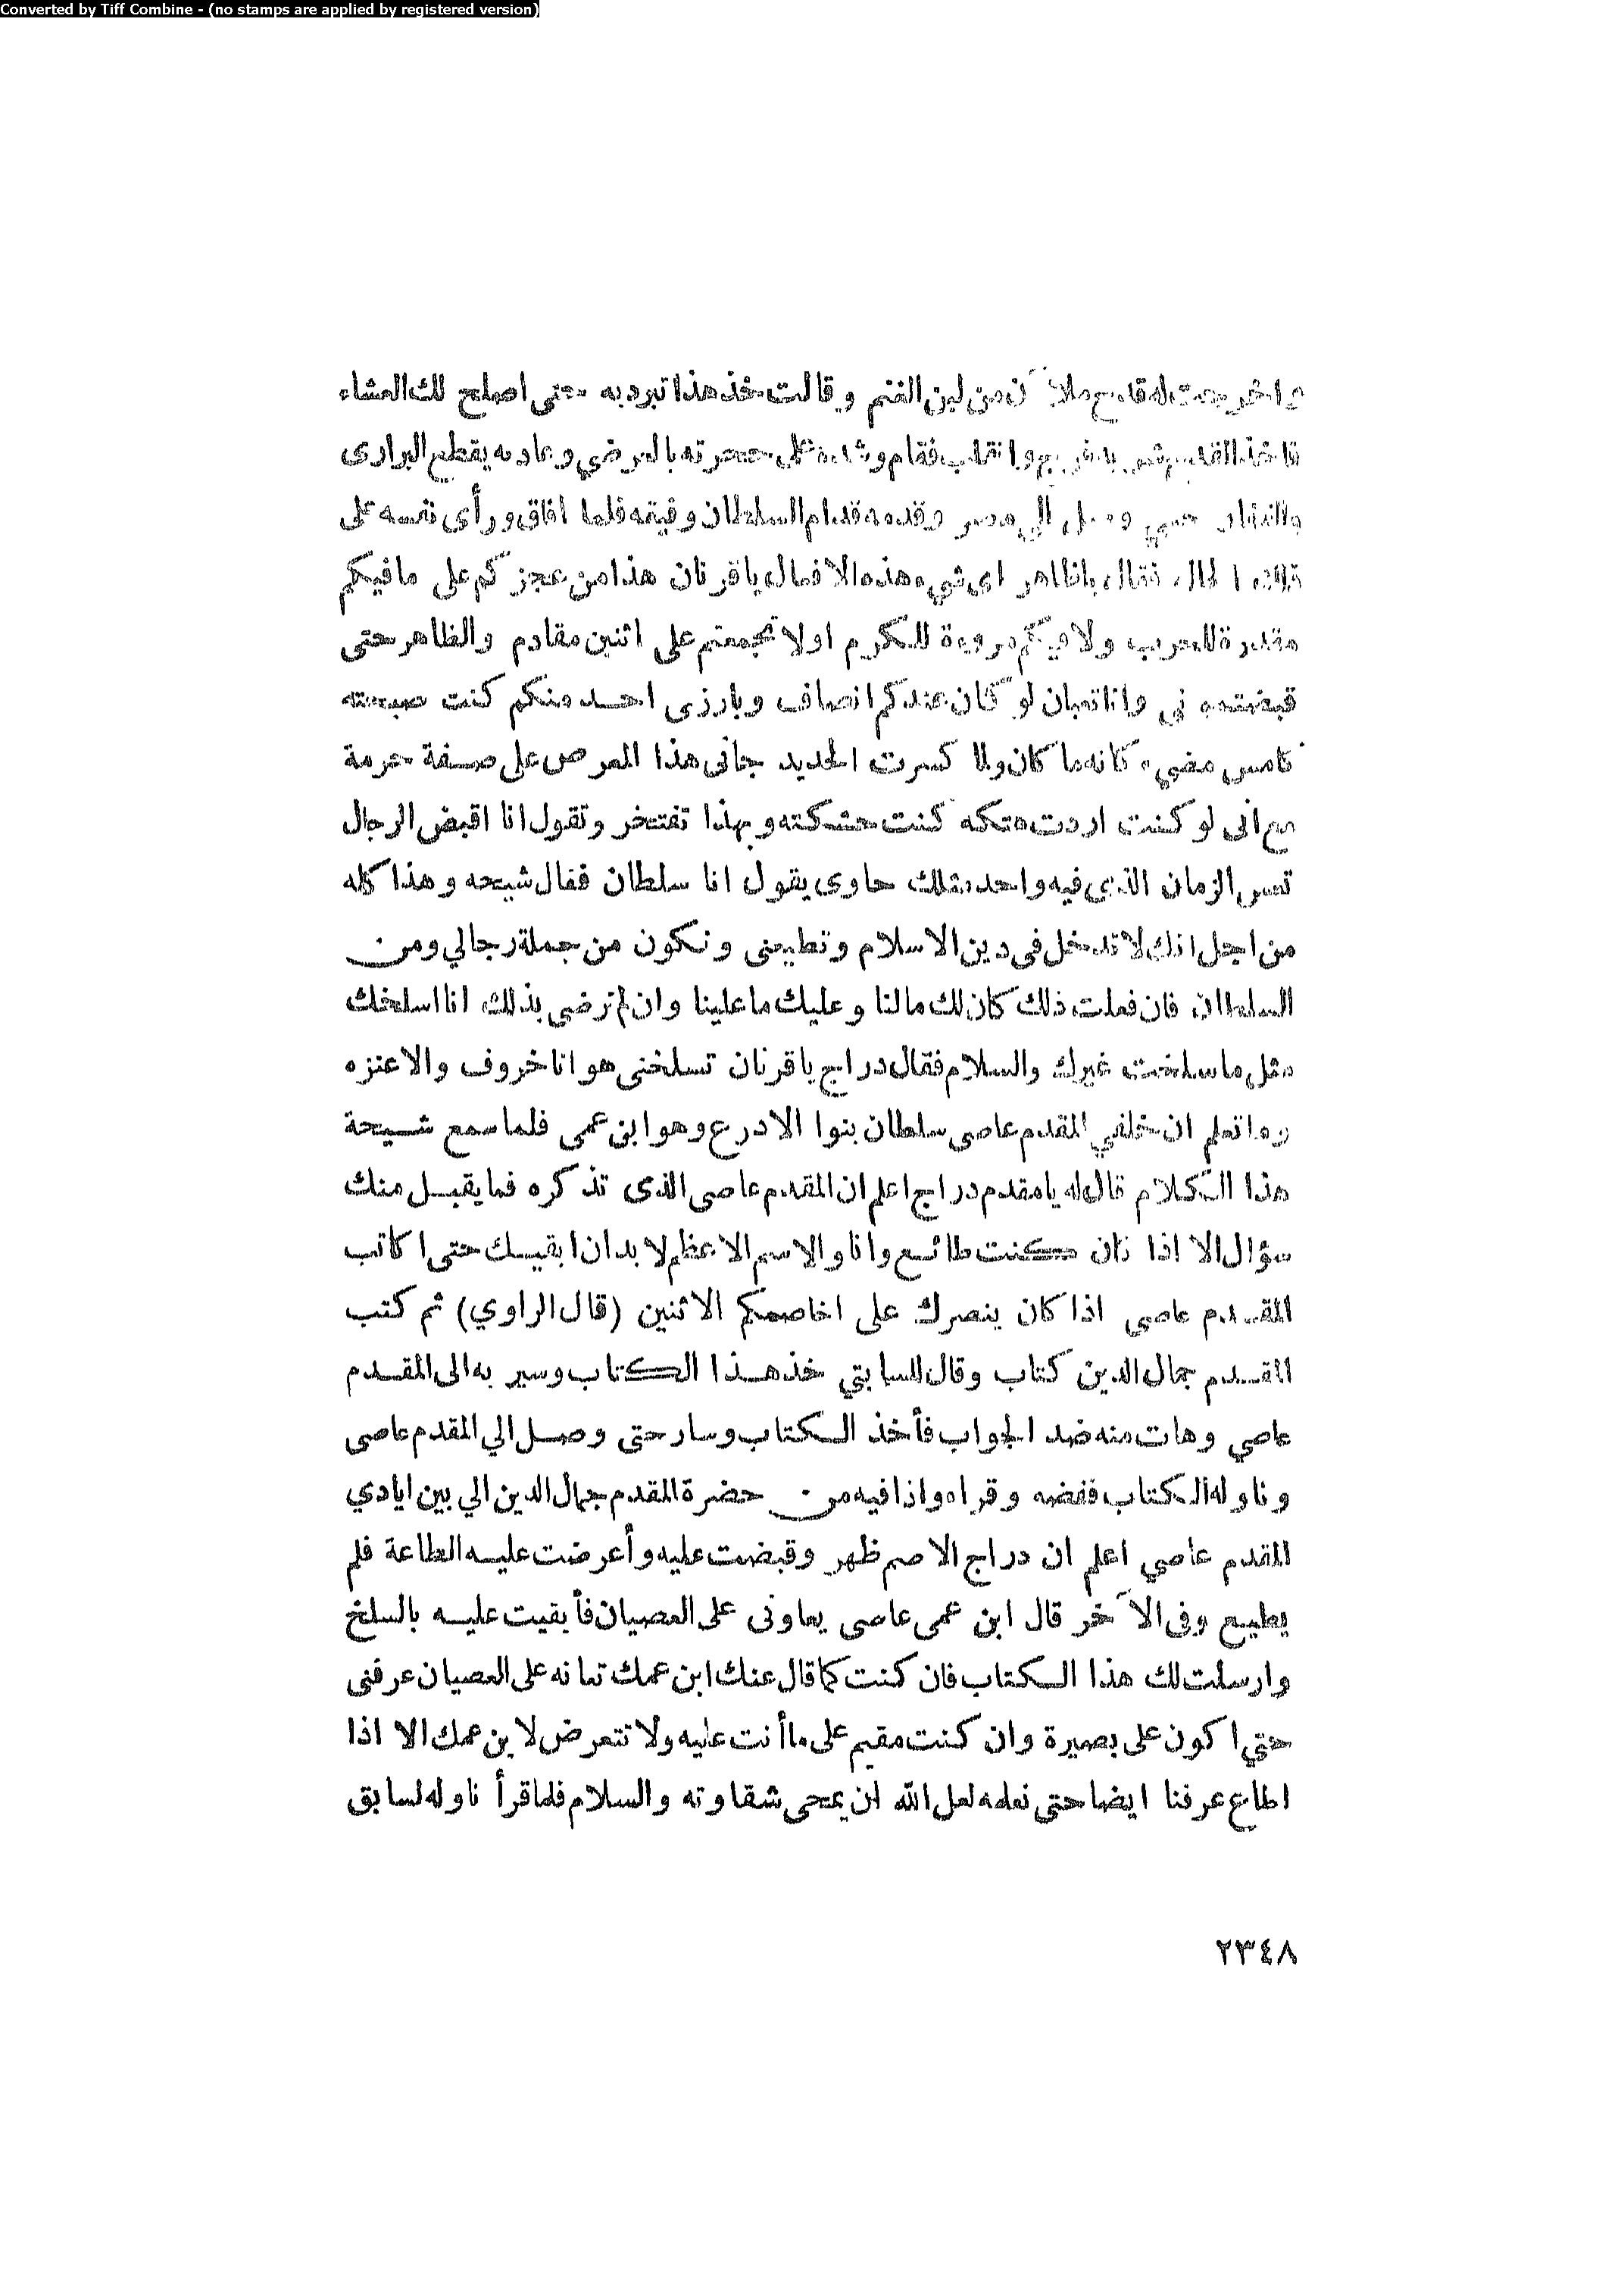 Converted by Tiff Combine - (no stamps are applied by registered version)
واخرجت له قدح ملآن من لبن الغنم وقالت خذ هذا تبرد به حتى اصلح لك العشاء
فاخذ القدح شرب وانقلب فقام وشده على حجرته بالعرضي وعاد به يقطع البرارى
والقفار حتي وصل الي مصر وقدمه قدام السلطان وفيقه فلما افاق ورأى نفسه على
تلك الحال فقال ياظاهر اى شيء هذه الافعال ياقرنان هذا من عجزكم على مافيكم
مقدرة للحرب ولا فيكم مروءة للكرم اولا تجمعتم على اثنين مقادم والظاهر حتى
قبضتموني وانا تعبان لو كان عندكم انصاف وبارزنى احد منكم كنت صبحته
كامس مضي كانه ما كان ولما كسرت الحديد جانى هذا المعرص على صفة حرمة
مع انى لو كنت اردت هتكه كنت هتكته وبهذا تفتخر وتقول انا اقبض الرجال
تعس الزمان الذى فيه واحد مثلك حاوى يقول انا سلطان فقال شيحه وهذا كله
من اجل انك لا تدخل فى دين الاسلام وتطيعنى وتكون من جملة رجالي ومن
السلطان فان فعلت ذلك كان لك مالنا وعليك ماعلينا وان لم ترضى بذلك انا اسلخك
مثل ما سلخت غيرك والسلام فقال دراج ياقرنان تسلخنى هو انا خروف والا عنزه
وما تعلم ان خلفي المقدم عاصى سلطان بنوا الادرع وهو ابن عمى فلما سمع شيحة
هذا الكلام قال له يامقدم دراج اعلم ان المقدم عاصى الذى تذكره فما يقبل منك
سؤال الا اذا كان كنت طائع وانا والاسم الاعظم لابد ان ابقيك حتى اكاتب
المقدم عاصى اذا كان ينصرك على اخاصمكم الاثنين (قال الراوي) ثم كتب
المقدم جمال الدين كتاب وقال للسابتي خذ هذا الكتاب وسير به الى المقدم
عاصي وهات منه ضد الجواب فأخذ الكتاب وسار حتى وصل الي المقدم عاصى
وناوله الكتاب ففضه وقراه واذا فيه من حضرة المقدم جمال الدين الي بين ايادي
المقدم عاصي اعلم ان دراج الاصم ظهر وقبضت عليه وأعرضت عليه الطاعة فلم
يطيع وفى الآخر قال ابن عمى عاصى يعاونى على العصيان فأبقيت عليه بالسلخ
وارسلت لك هذا الكتاب فان كنت كما قال عنك ابن عمك تعانه على العصيان عرفنى
حتي اكون على بصيرة وان كنت مقيم على ماأنت عليه ولا تتعرض لابن عمك الا اذا
اطاع عرفنا ايضا حتى نعلمه لعل الله ان يمحى شقاوته والسلام فلما قرأ ناوله لسابق
٢٣٤٨